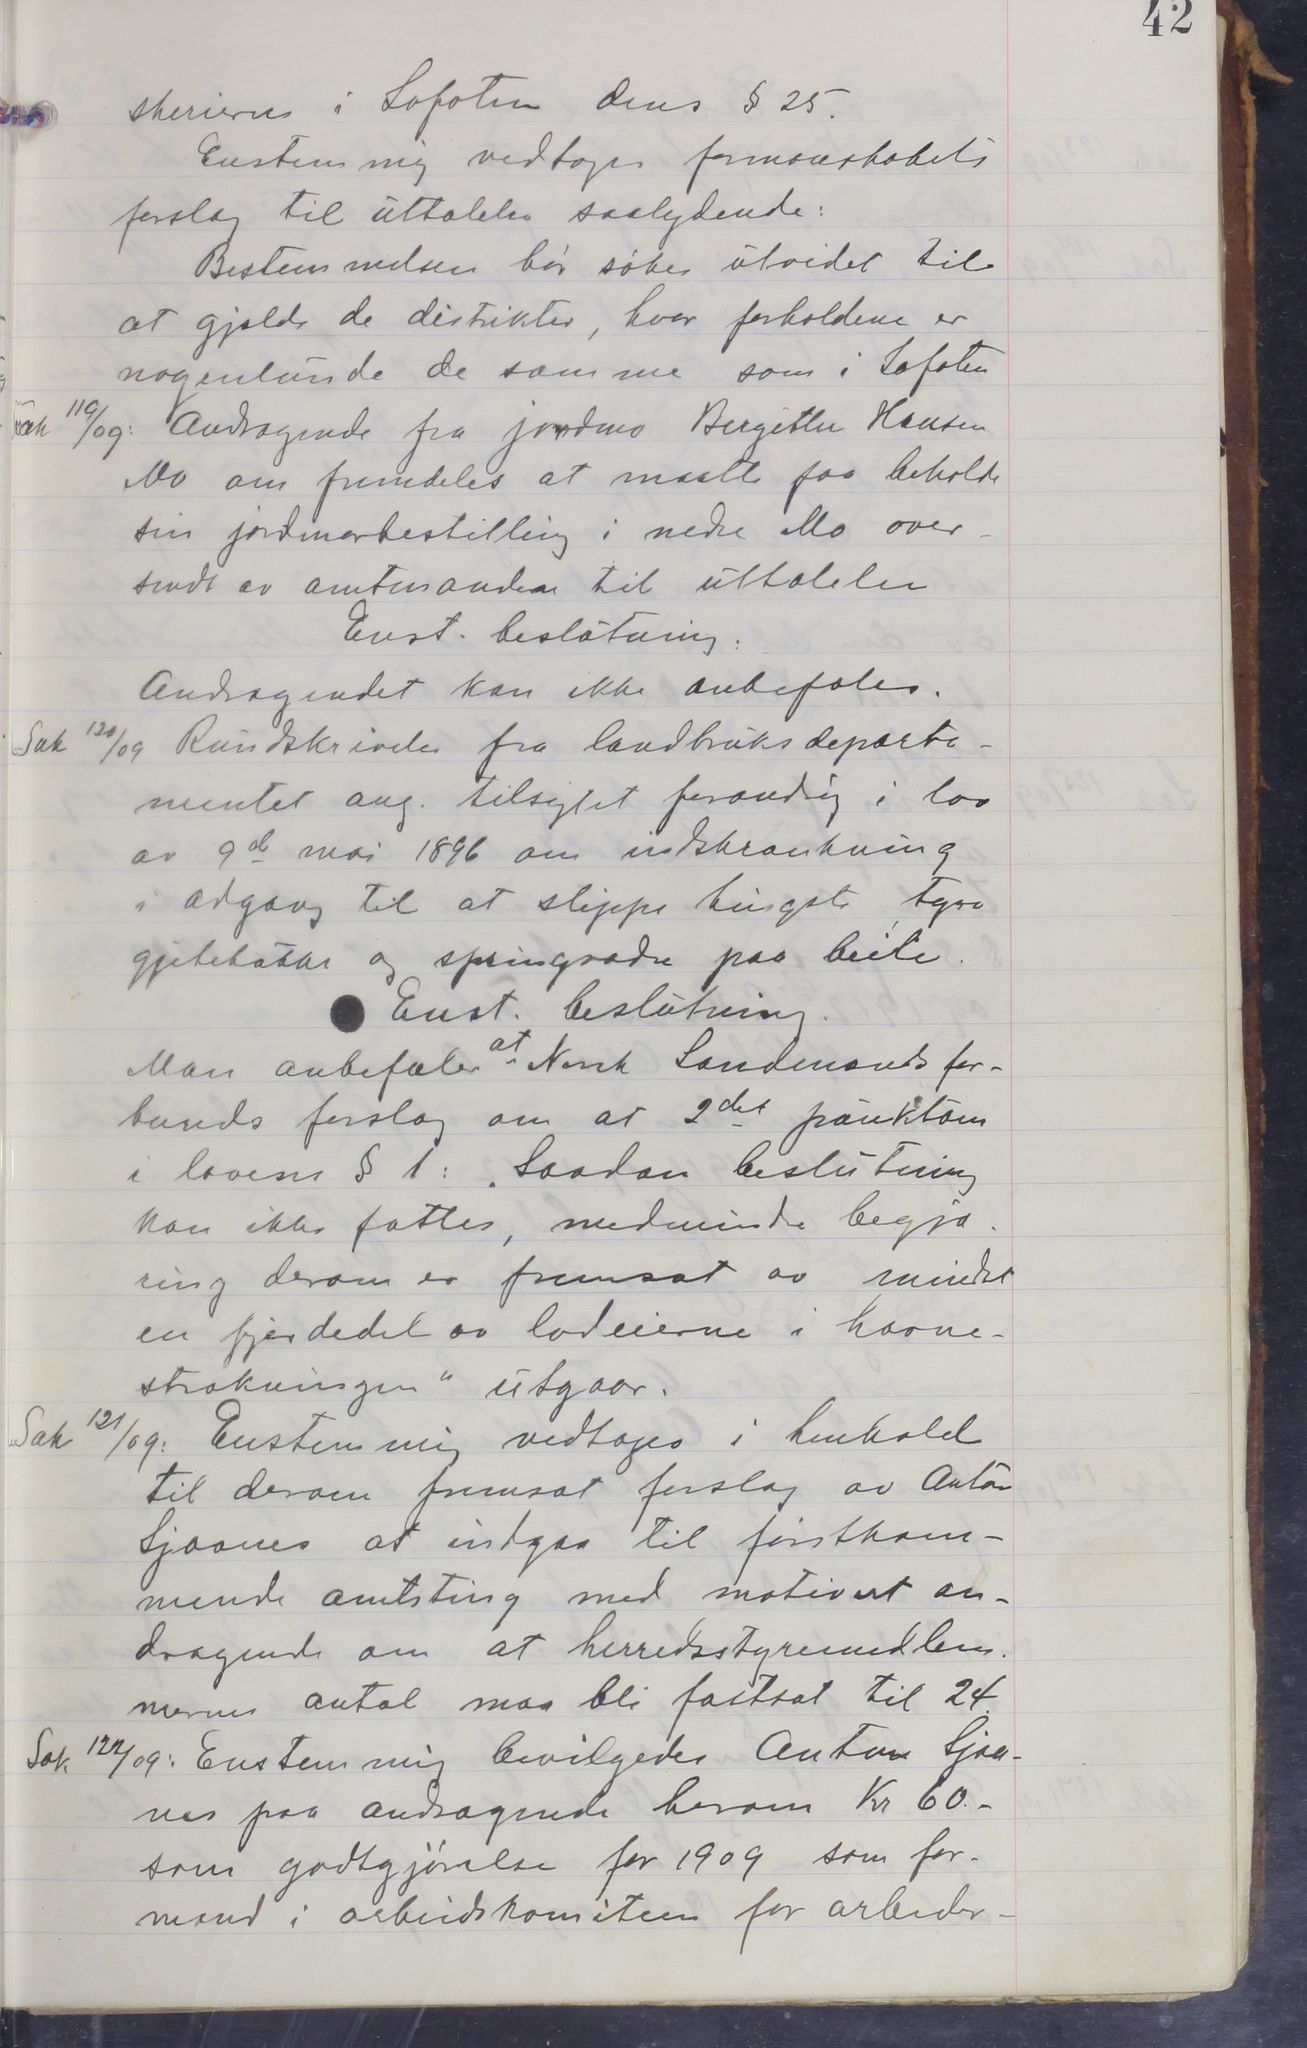 42
skerierne i Lofoten dens § 25.
Enstemmig vedtages formandskabets
forslag til uttalelse saalydende:
Bestemmelsen bør søkes utvidet til
at gjælde de distrikter, hvor forholdene er
nogenlunde de samme som i Lofoten
Sak 119/09: Andragende fra jordmo Bergitte Hansen
Mo om fremdeles at maatte faa beholde
sin jordmorbestilling i nedre Mo over-
sendt av amtmanden til uttalelse
Enst. beslutning:
Andragendet kan ikke anbefales.
Sak 120/09 Rundskrivelse fra landbruksdeparte-
mentet ang. tilsigtet forandrig i lov
av 9de mai 1896 om indskrænkning
i adgang til at slippe hingste, tyre
gjetebukke og springvædre paa beite.
Enst. beslutning.
Man anbefaler at Norsk Landmandsfor-
bunds forslag om at 2det punktum
i lovens § 1: "Saadan beslutning
kan ikke fattes, medmindre begjæ-
ring derom er fremsat av mindst
en fjerdedel av lodeierne i havne-
strækningen" utgaar.
Sak 121/09: Enstemmig vedtages i henhold
til derom fremsat forslag av Anton
Sjaanes at indgaa til førstkom-
mende amtsting med motivert an-
dragende om at herredsstyremedlem-
mernes antal maa bli fastsat til 24.
Sak 122/09: Enstemmig bevilgedes Anton Sjaa-
nes paa andragende herom Kr 60.-
som godtgjørelse for 1909 som for-
mand i arbeidskomiteen for arbeider-